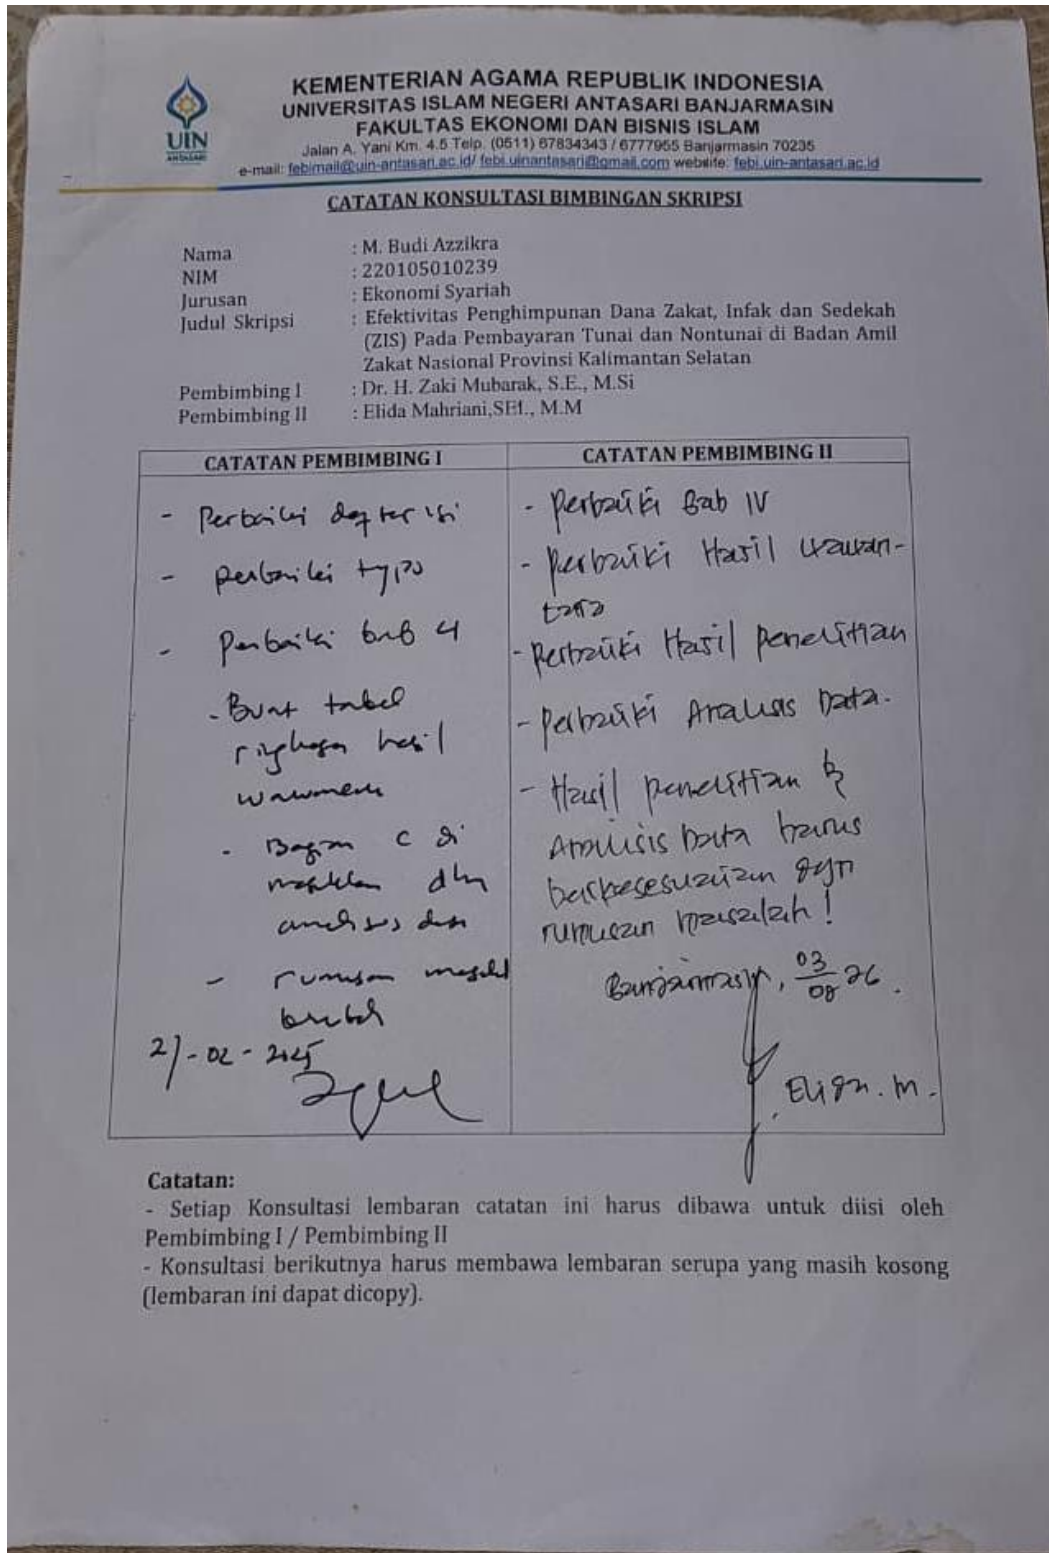 KEMENTERIAN AGAMA REPUBLIK INDONESIA
UNIVERSITAS ISLAM NEGERI ANTASARI BANJARMASIN
FAKULTAS EKONOMI DAN BISNIS ISLAM
Jalan A. Yani Km. 4.5 Telp. (0511) 67834343 / 6777955 Banjarmasin 70235
e-mail: febimail@uin-antasari.ac.id/ febi.uinantasari@gmail.com website: febi.uin-antasari.ac.id
UIN
ANTASARI
CATATAN KONSULTASI BIMBINGAN SKRIPSI
Nama : M. Budi Azzikra
NIM : 220105010239
Jurusan : Ekonomi Syariah
Judul Skripsi : Efektivitas Penghimpunan Dana Zakat, Infak dan Sedekah
(ZIS) Pada Pembayaran Tunai dan Nontunai di Badan Amil
Zakat Nasional Provinsi Kalimantan Selatan
Pembimbing I : Dr. H. Zaki Mubarak, S.E., M.Si
Pembimbing II : Elida Mahriani,SEI., M.M
CATATAN PEMBIMBING I
- Perbaiki daftar isi
- perbaiki typo
- Perbaiki bab 4
- Buat tabel
ringkasan hasil
- Bagian C di
masukkan dlm
analisis data
- rumusan masalah
CATATAN PEMBIMBING II
- Perbaiki Bab IV
- Perbaiki Hasil wawan-
cara
- Perbaiki Hasil penelitian
- Perbaiki Analisis Data.
- Hasil penelitian &
Analisis Data harus
berkesesuaian dgn
rumusan masalah!
Banjarmasin, 03/08 26.
Catatan:
- Setiap Konsultasi lembaran catatan ini harus dibawa untuk diisi oleh
Pembimbing I / Pembimbing II
- Konsultasi berikutnya harus membawa lembaran serupa yang masih kosong
(lembaran ini dapat dicopy).